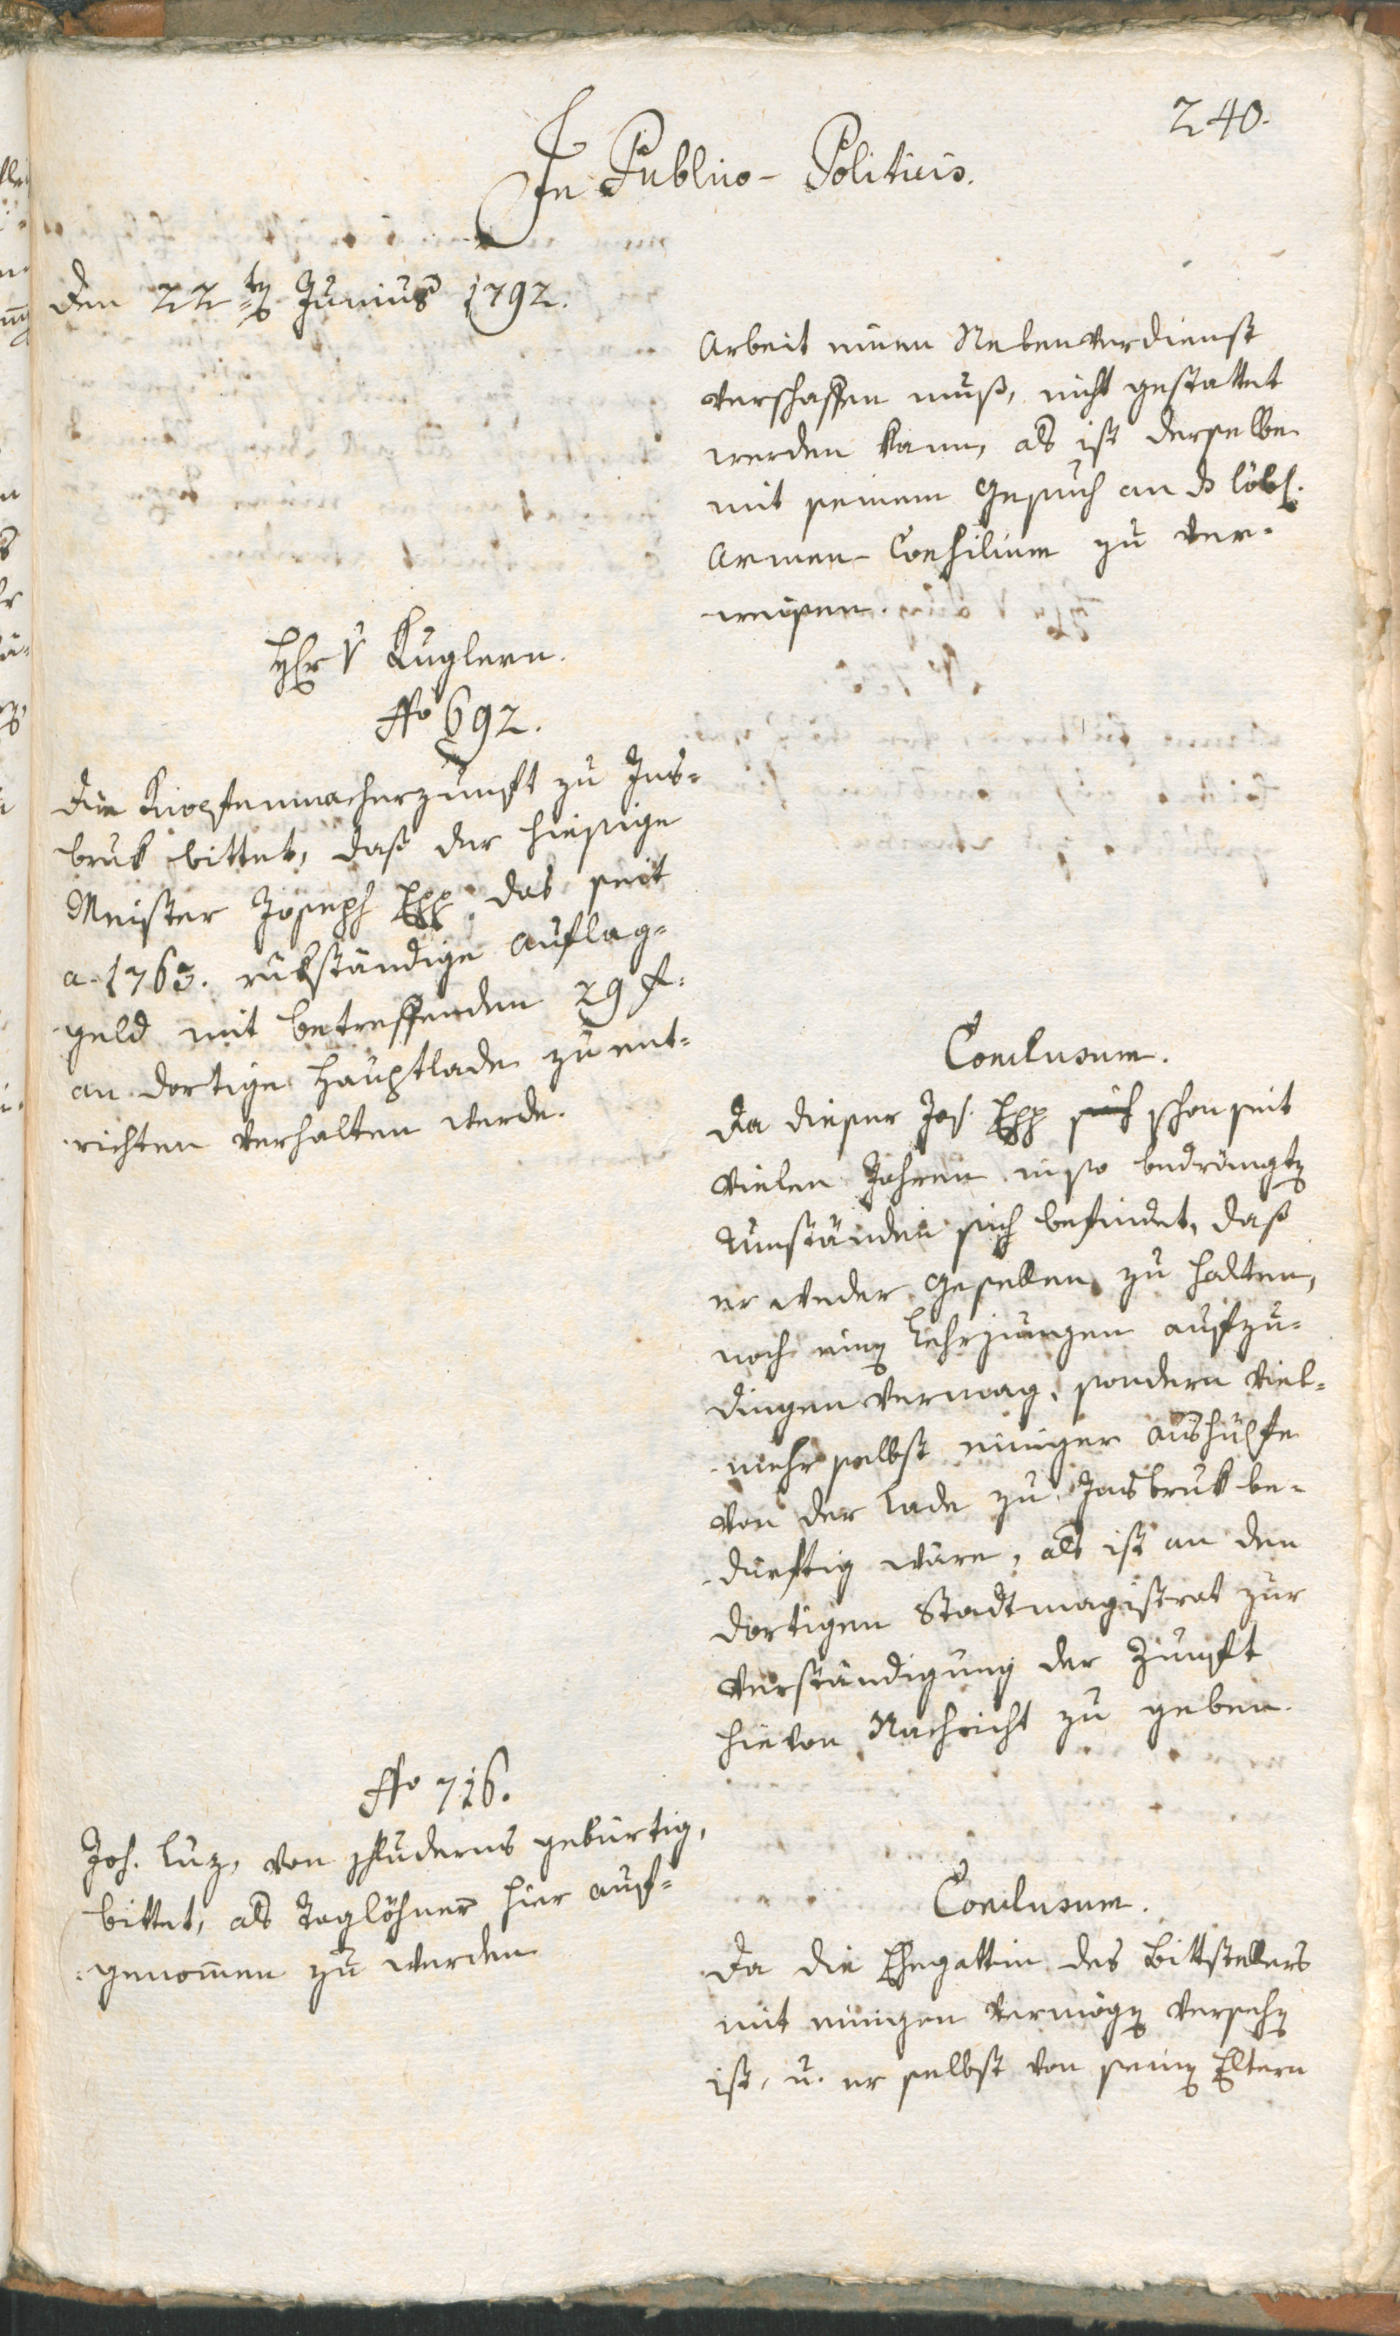 240.
In Publico-Politicis.
Den 22ten Junius 1792.
Arbeit einen Nebenverdienst
verschaffen muß, nicht gestattet
werden kann, als ist derselbe
mit seinem Gesuch an d löbl.
Armen-Consilium zu ver-
weisen.
Hr v Kuglern.
No 692.
Die Knopfenmacherzunft zu Ins-
bruk bittet, daß der hiesige
Meister Joseph Epp das seit
a. 1763. rükständige Auflag-
geld mit betreffenden 29 f.
an dortige Hauptlade zu ent-
richten verhalten werde.
Conclusum.
Da dieser Jos. Epp sich schon seit
vielen Jahren in so bedrängten
Umständen sich befindet, daß
er weder Gesellen zu halten,
noch einen Lehrjungen aufzu-
dingen vermag, sondern viel-
mehr selbst einiger Aushülfe
von der Lade zu Insbruk be-
dürftig wäre, als ist an den
dortigen Stadtmagistrat zur
Verständigung der Zunft
hievon Nachricht zu geben.
No 716.
Joh. Luz, von Schluderns gebürtig,
bittet, als Taglöhner hier auf-
genommen zu werden
Conclusum.
Da die Ehegattin des Bittstellers
mit einigen Vermögen versehen
ist, u. er selbst von seinen Eltern